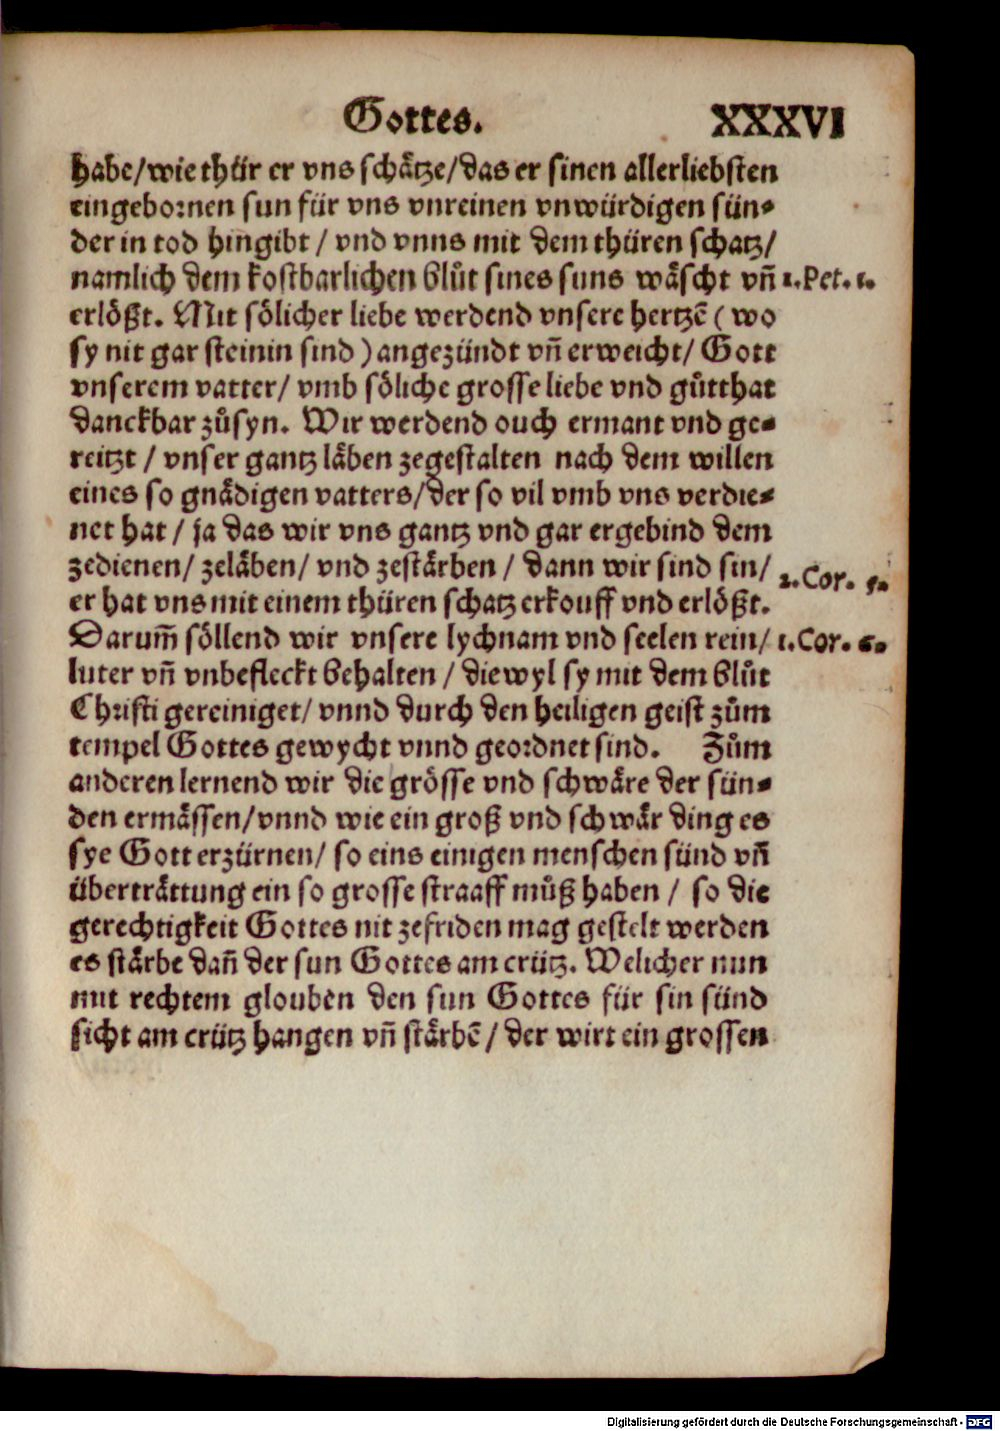 Gottes. XXXVI
habe/wie thür er vns schätze/das er sinen allerliebsten
eingebornen sun für vns vnreinen vnwürdigen sün⸗
der in tod hingibt / vnd vnns mit dem thüren schatz/
namlich dem kostbarlichen blůt sines suns wäscht vn̄ 1.Pet. 1.
erlößt. Mit sölicher liebe werdend vnsere hertzē ( wo
sy nit gar steinin sind ) angezündt vn̄ erweicht/ Gott
vnserem vatter/ vmb söliche grosse liebe vnd gůtthat
danckbar zůsyn. Wir werdend ouch ermant vnd ge⸗
reitzt / vnser gantz läben zegestalten nach dem willen
eines so gnädigen vatters/der so vil vmb vns verdie⸗
net hat / ja das wir vns gantz vnd gar ergebind dem
zedienen/ zeläben/ vnd zestärben / dann wir sind sin/ 2.Cor. 5.
er hat vns mit einem thüren schatz erkouff vnd erlößt.
Darum̄ söllend wir vnsere lychnam vnd seelen rein/ 1.Cor. 6.
luter vn̄ vnbefleckt behalten / diewyl sy mit dem blůt
Christi gereiniget/ vnnd durch den heiligen geist zům
tempel Gottes gewycht vnnd geordnet sind. Zům
anderen lernend wir die grösse vnd schwäre der sün⸗
den ermässen/vnnd wie ein groß vnd schwär ding es
sye Gott erzürnen/ so eins einigen menschen sünd vn̄
überträttung ein so grosse straaff můß haben / so die
gerechtigkeit Gottes nit zefriden mag gestelt werden
es stärbe dan̄ der sun Gottes am crütz. Welicher nun
mit rechtem glouben den sun Gottes für sin sünd
sicht am crütz hangen vn̄ stärbē / der wirt ein grossen
Digitalisierung gefördert durch die Deutsche Forschungsgemeinschaft - DFG